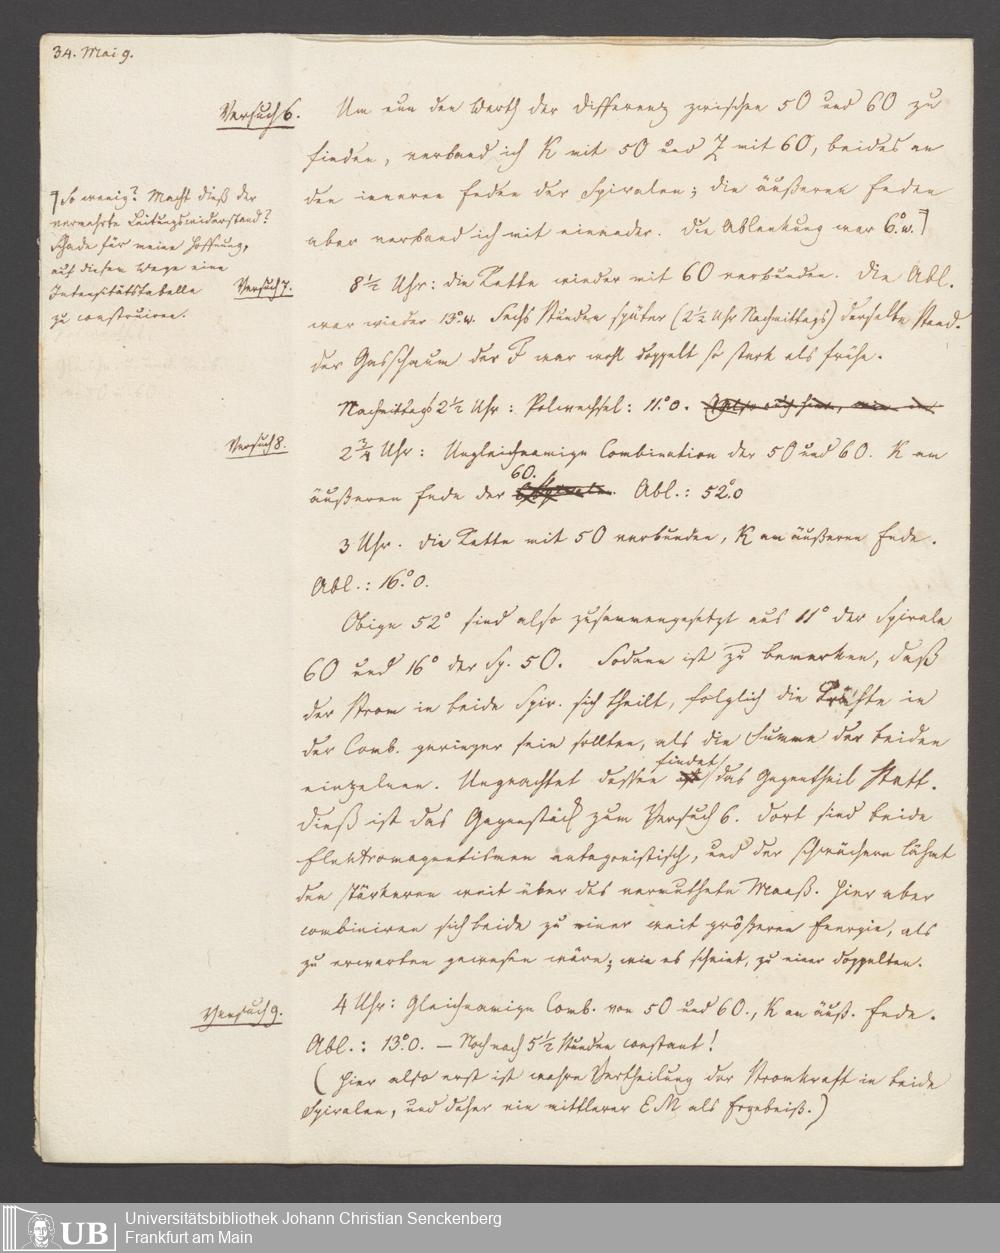 34. Mai 9.
Versuch 6. Um nun den Werth der Differenz zwischen 50 und 60 zu
finden, verband ich K mit 50 und Z mit 60, beides an
den inneren Enden der Spiralen; die äußeren Enden
aber verband ich mit einander. Die Ablenkung war 6°. w. ⌉
⌉ So wenig? Macht dieß der
vermehrte Leitungswiderstand?
Schade für meine Hoffnung,
auf diesem Wege eine
Intensitätstabelle
zu construiren.
Versuch 7. 8½ Uhr: die Kette wieder mit 60 verbunden. Die Abl.
war wieder 13°. w. Sechs Stunden später (2½ Uhr Nachmittags) derselbe Stand.
der Gasschaum der F war wohl doppelt so stark als frühe.
Nachmittags 2½ Uhr: Polwechsel: 11°. O.
Versuch 8. 2¾ Uhr: Ungleichnamige Combination der 50 und 60. K am
60.
äußeren Ende der Abl.: 52°. O
3 Uhr. die Kette mit 50 verbunden, K am äußeren Ende.
Abl.: 16°. O.
Obige 52° sind also zusammengesetzt aus 11° der Spirale
60 und 16° der Sp. 50. Sodann ist zu bemerken, daß
der Strom in beide Spir. sich theilt, folglich die Kräfte in
der Comb. geringer sein sollten, als die Summe der beiden
findet
einzelnen. Ungeachtet dessen das Gegentheil Statt.
Dieß ist das Gegenstück zum Versuch 6. Dort sind beide
Elektromagnetismen antagonistisch, und der schwächere lähmt
den stärkeren weit über das vermuthete Maaß. Hier aber
combiniren sich beide zu einer weit größeren Energie, als
zu erwarten gewesen wäre; wie es scheint, zu einer doppelten.
Versuch 9. 4 Uhr: Gleichnamige Comb. von 50 und 60., K am äuß. Ende.
Abl.: 13°. O. — Noch nach 5½ Stunden constant!
(Hier also erst ist wahre Vertheilung der Stromkraft in beide
Spiralen, und daher ein mittlerer EM als Ergebniß.)
UB
Universitätsbibliothek Johann Christian Senckenberg
Frankfurt am Main